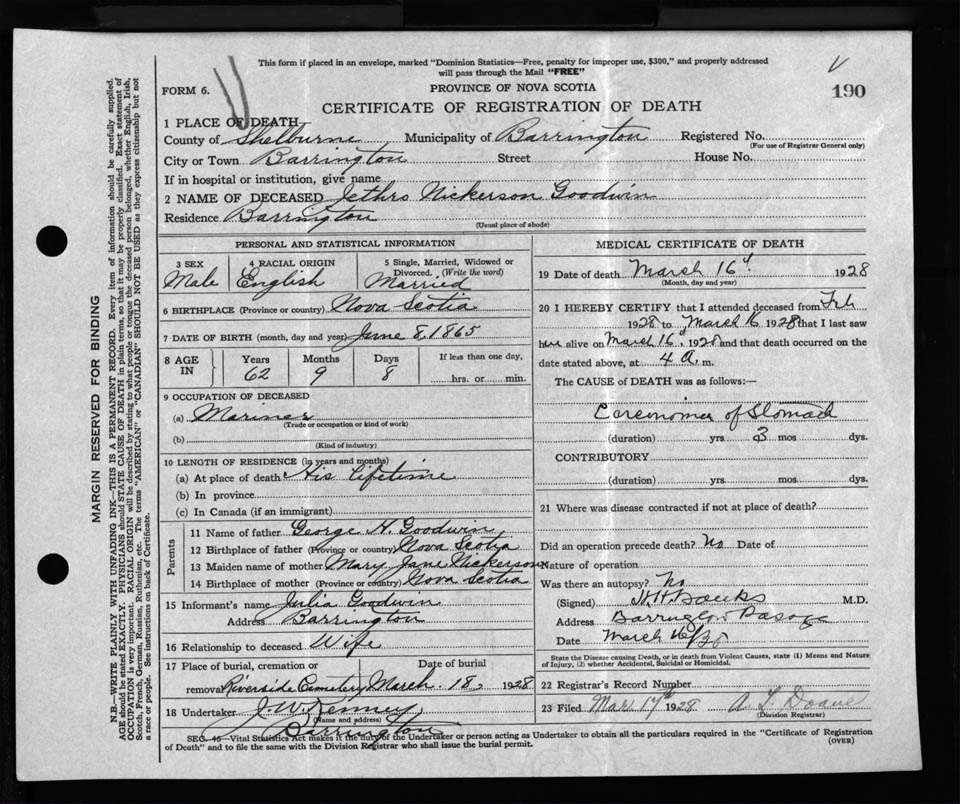 This form if placed in an envelope, marked "Dominion Statistics—Free, penalty for improper use, $300," and properly addressed
will pass through the Mail "FREE"
FORM 6.
PROVINCE OF NOVA SCOTIA
190
CERTIFICATE OF REGISTRATION OF DEATH
1 PLACE OF DEATH
County of Shelburne Municipality of Barrington Registered No.
(For use of Registrar General only)
City or Town Barrington Street House No.
If in hospital or institution, give name
2 NAME OF DECEASED Jethro Nickerson Goodwin
Residence Barrington
(Usual place of abode)
PERSONAL AND STATISTICAL INFORMATION
3 SEX 4 RACIAL ORIGIN 5 Single, Married, Widowed or
Divorced. (Write the word)
Male English Married
6 BIRTHPLACE (Province or country) Nova Scotia
7 DATE OF BIRTH (month, day and year) June 8, 1865
8 AGE IN Years Months Days If less than one day,
62 9 8 hrs. or min.
9 OCCUPATION OF DECEASED
(a) Mariner
(Trade or occupation or kind of work)
(b)
(Kind of industry)
10 LENGTH OF RESIDENCE (in years and months)
(a) At place of death His Lifetime
(b) In province
(c) In Canada (if an immigrant)
Parents
11 Name of father George H. Goodwin
12 Birthplace of father (Province or country) Nova Scotia
13 Maiden name of mother Mary Jane Nickerson
14 Birthplace of mother (Province or country) Nova Scotia
15 Informant's name Julia Goodwin
Address Barrington
16 Relationship to deceased Wife
17 Place of burial, cremation or Date of burial
removal Riverside Cemetery March 18, 1928
18 Undertaker J. W. Kenney
(Name and address)
Barrington
MEDICAL CERTIFICATE OF DEATH
19 Date of death March 16 1928
(Month, day and year)
20 I HEREBY CERTIFY that I attended deceased from Feb
1928 to March 16 1928 that I last saw
him alive on March 16, 1928 and that death occurred on the
date stated above, at 4 a. m.
The CAUSE of DEATH was as follows:—
Carcinoma of Stomach
(duration) yrs. 3 mos dys.
CONTRIBUTORY
(duration) yrs. mos. dys.
21 Where was disease contracted if not at place of death?
Did an operation precede death? No Date of
Nature of operation
Was there an autopsy? No
(Signed) H. H. Banks M.D.
Address Barrington Passage
Date March 16/
State the Disease causing Death, or in death from Violent Causes, state (1) Means and Nature
of Injury, (2) whether Accidental, Suicidal or Homicidal.
22 Registrar's Record Number
23 Filed Mar. 17th 1928 A L Doane
(Division Registrar)
SEC. 46—Vital Statistics Act makes it the duty of the Undertaker or person acting as Undertaker to obtain all the particulars required in the "Certificate of Registration
of Death" and to file the same with the Division Registrar who shall issue the burial permit. (OVER)
MARGIN RESERVED FOR BINDING
N.B—WRITE PLAINLY WITH UNFADING INK—THIS IS A PERMANENT RECORD. Every item of information should be carefully supplied.
AGE should be stated EXACTLY. PHYSICIANS should STATE CAUSE OF DEATH in plain terms, so that it may be properly classified. Exact statement of
OCCUPATION is very important. RACIAL ORIGIN will be described by stating to what people or tongue the deceased person belonged, whether English, Irish,
Scotch, French, German, Russian, Ruthenian, etc. The terms "AMERICAN" or "CANADIAN" SHOULD NOT BE USED as they express citizenship but not
a race or people. See instructions on back of Certificate.